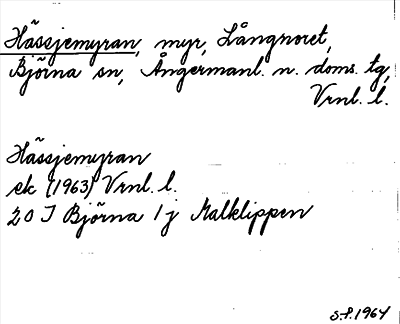 Hässjemyran, myr, Långnoret,
Björna sn, Ångermanl. n. doms. tg,
Vrnl. l.
Hässjemyran
ek (1963) Vrnl. l.
20 I Björna 1 j Malklippen
S.P. 1964